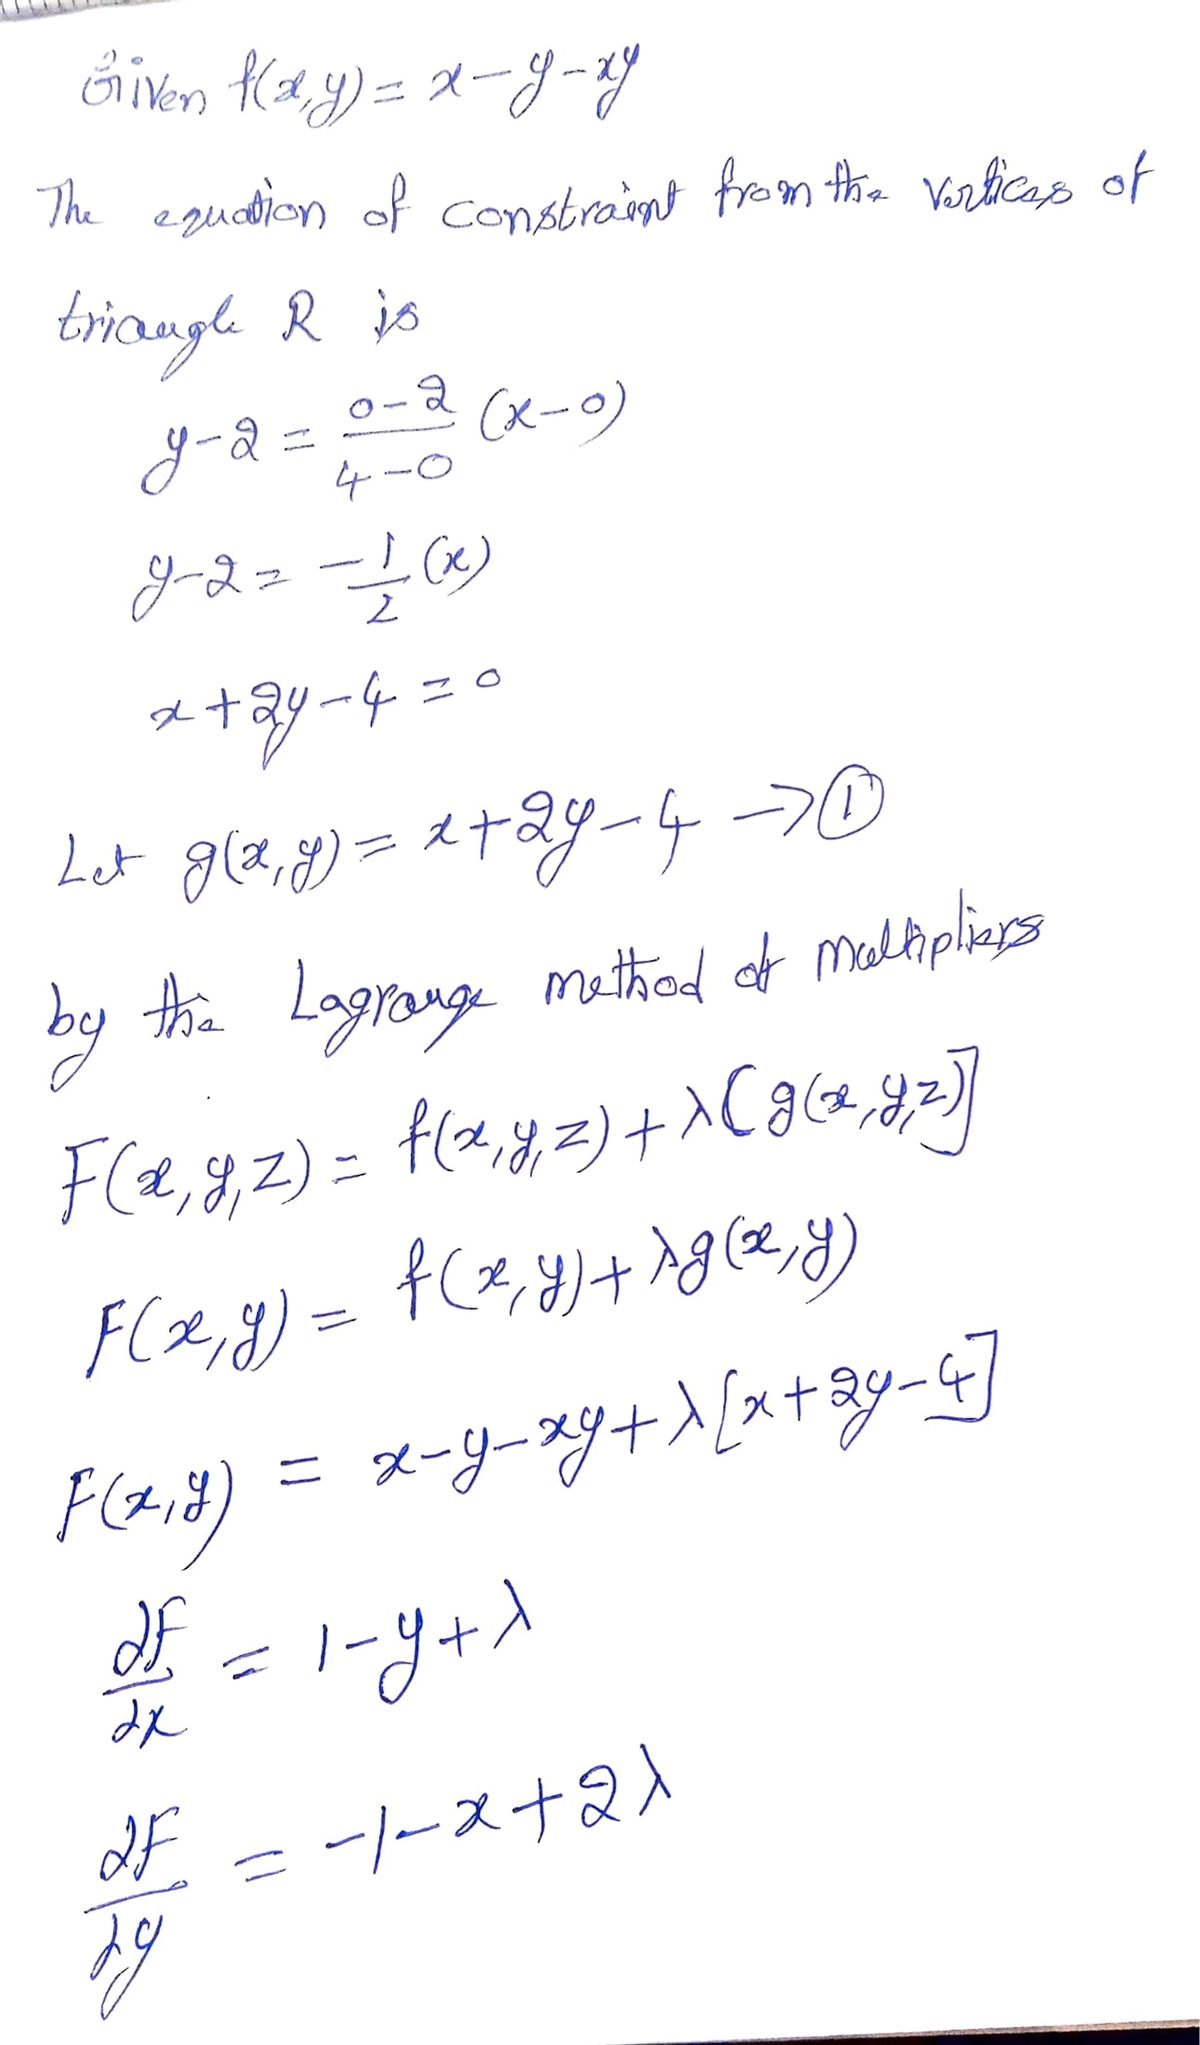 Given f(x,y) = x-y-xy
The equation of constraint from the vertices of
triangle R is
y-2 = \frac{0-2}{4-0} (x-0)
y-2 = -\frac{1}{2} (x)
x+2y-4 = 0
Let g(x,y) = x+2y-4 → ①
by the Lagrange method of multipliers
F(x,y,z) = f(x,y,z) + λ[g(x,y,z)]
F(x,y) = f(x,y) + λg(x,y)
F(x,y) = x-y-xy+λ[x+2y-4]
\frac{∂F}{∂x} = 1-y+λ
\frac{∂F}{∂y} = -1-x+2λ